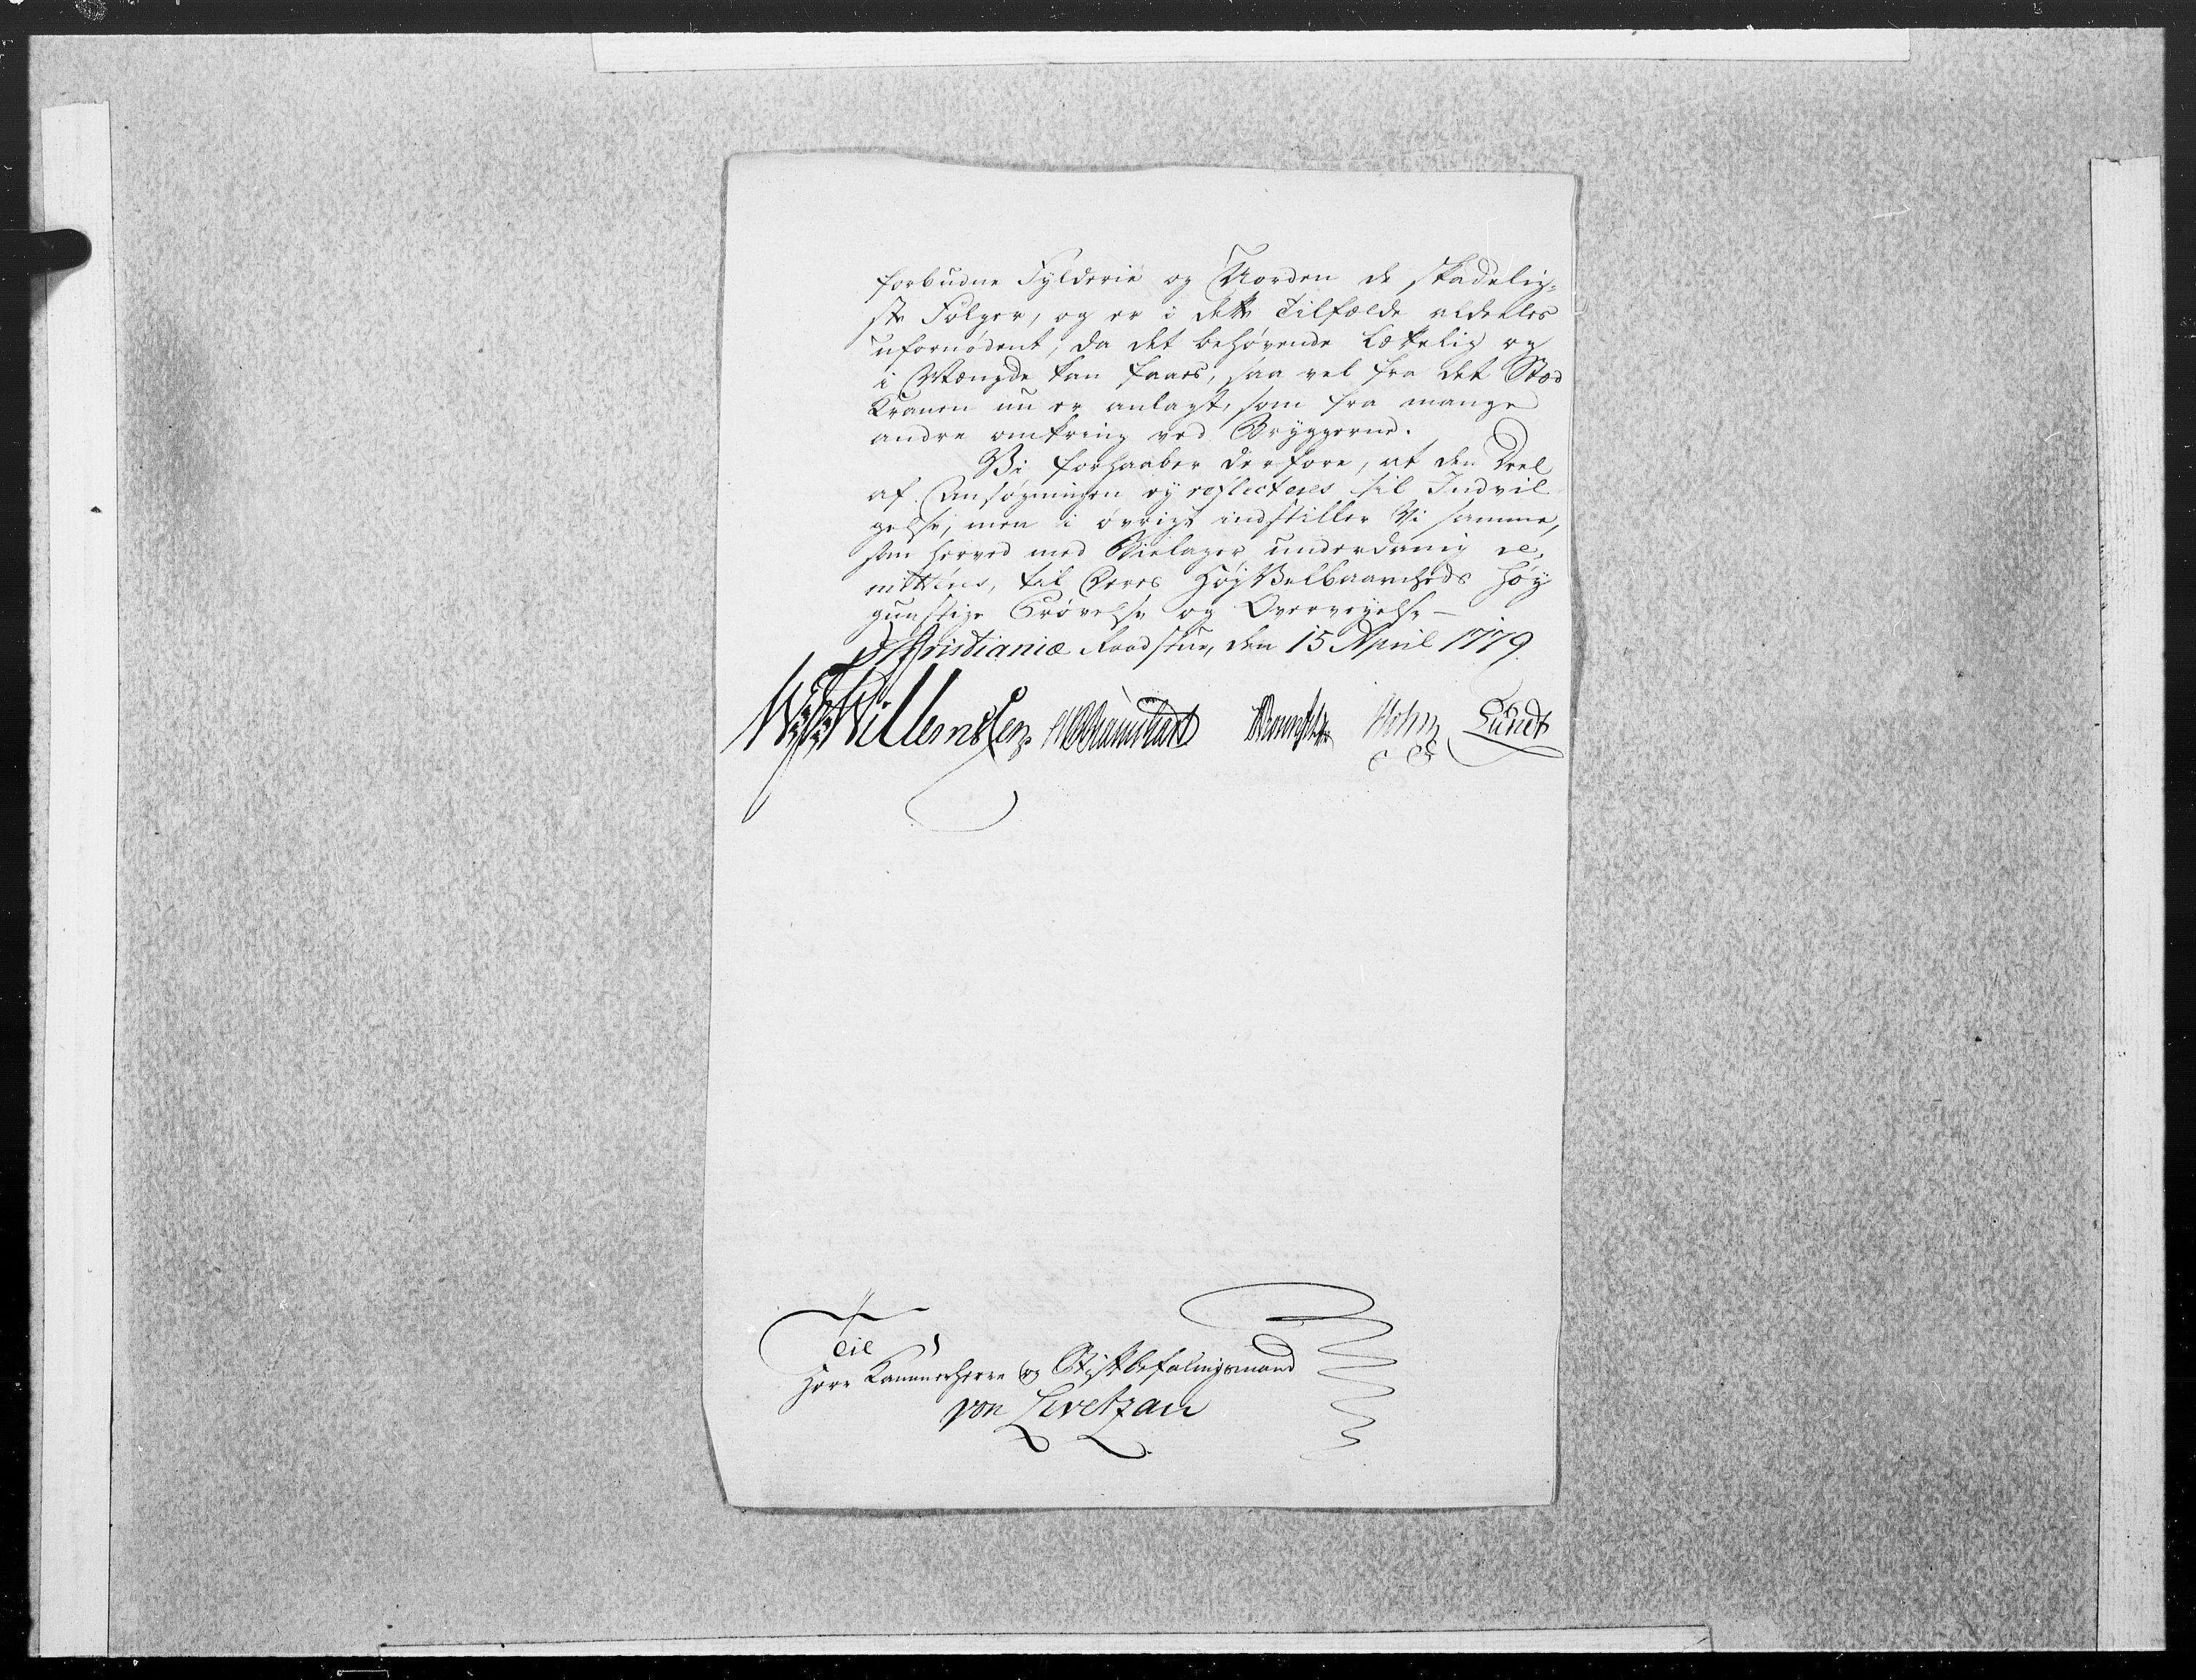 forbudne Fylderie og Uorden de skadelig=
ste Følger, og er i dette Tilfælde aldeles
ufornødent, da det behøvende lættelig og
i Mængde kan faaes, saa vel fra det Stæd
Kranen nu er anlagt, som fra mange
andre omkring ved Bryggerne.
Vi forhaaber derfore, at den Deel
af Ansøgningen ey reflecteres til Indvil
gelse, men i øvrigt indstiller Vi samme,
som herved med Bielager underdanig re=
mitteres, til Deres HøyVelbaarenheds høy
gunstige Prøvelse og Overveyelse
Christianiæ Raadstue, den 15 April 1779.
Willemsen Holm Lundt
Til
Herr Kammerherre og Stiftbefalingsmand
von Levetzau